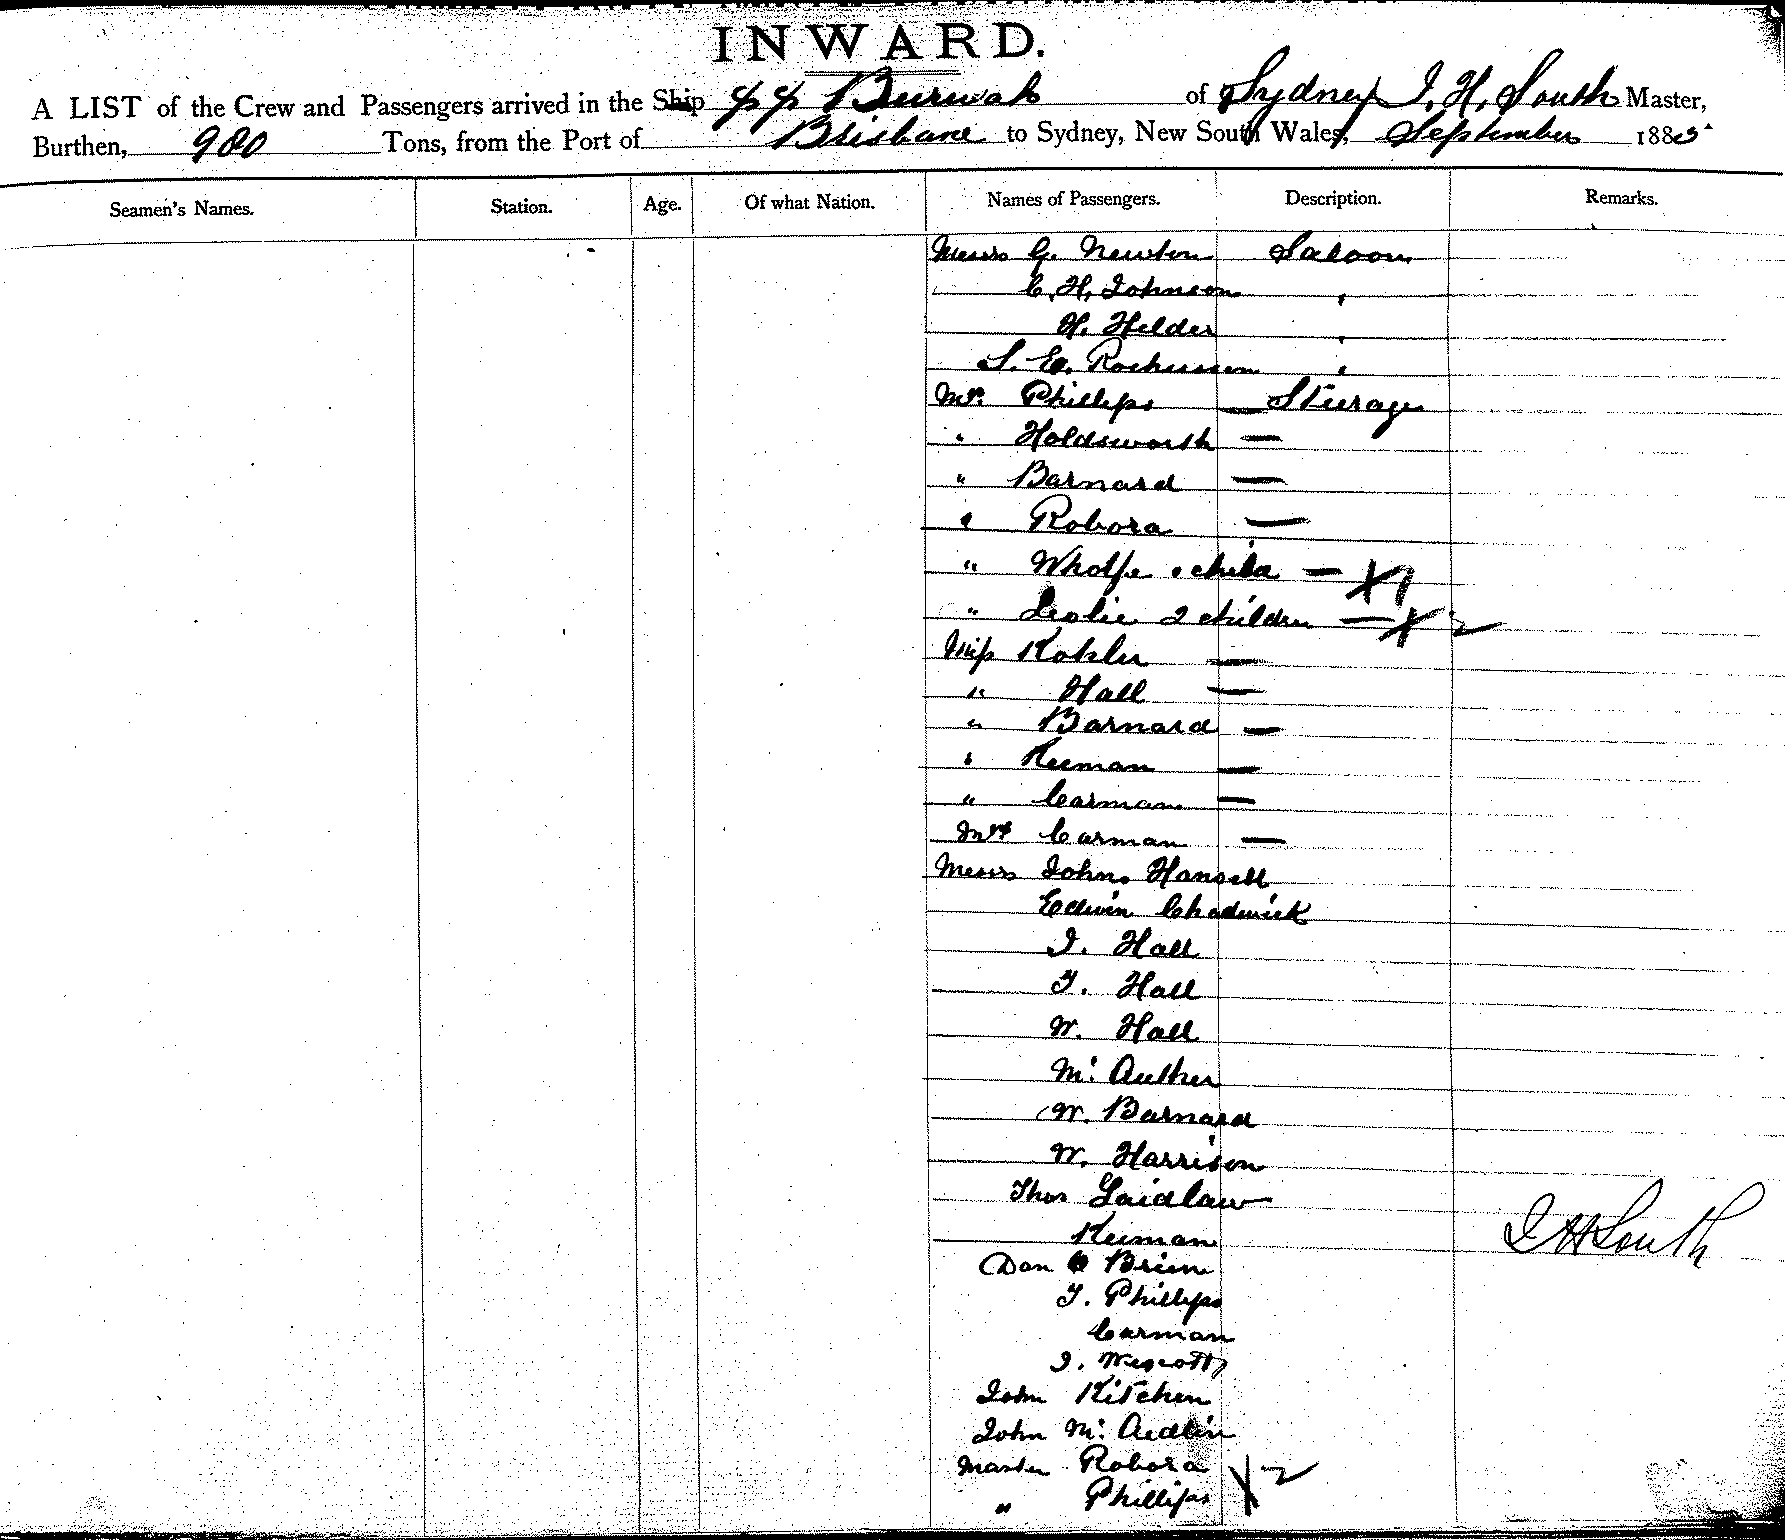 INWARD.
A LIST of the Crew and Passengers arrived in the Ship SS Burwah of Sydney, J. H. South Master,
Burthen, 980 Tons, from the Port of Brisbane to Sydney, New South Wales, September 188
Seamen's Names. Station. Age. Of what Nation. Names of Passengers. Description. Remarks.
Messrs G. Newton Saloon
C. H. Johnson "
H. Helder "
S. E. "
Mrs. Phillips — Steerage
" Holdsworth —
" Barnard —
" Robora —
" Wholfe & child — X 1
" Leslie 2 children — X 2
Miss Kohler —
" Hall —
" Barnard —
" Keeman —
" Carman —
Mrs Carman —
Messrs John Hansell
Edwin Chadwick
J. Hall
T. Hall
W. Hall
Mc Auther
W. Barnard
W. Harrison
Thos Laidlaw
Keeman
J H South
Dan O Brien
T. Phillips
Carman
J. Wescott
John Kitchen
John Mc
Master Robora X 2
" Phillips